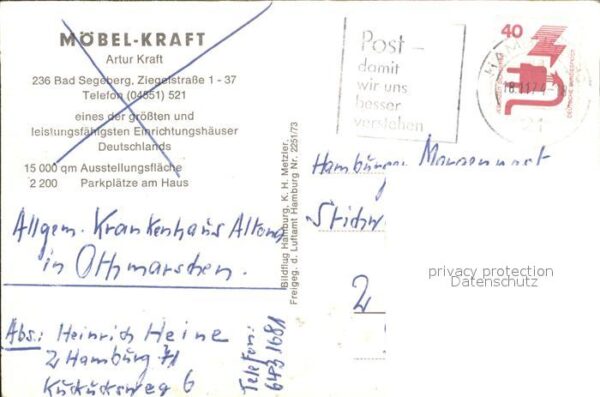 MÖBEL-KRAFT
Artur Kraft
236 Bad Segeberg, Ziegelstraße 1 - 37
Telefon (04551) 521
eines der größten und
leistungsfähigsten Einrichtungshäuser
Deutschlands
15 000 qm Ausstellungsfläche
2 200 Parkplätze am Haus
Allgem. Krankenhaus Altona
in Othmarschen.
Abs: Heinrich Heine
2 Hamburg 71
Kuckucksweg 6
Telefon:
6431681
Bildflug Hamburg. K. H. Metzler,
Freigeg. d. Luftamt Hamburg Nr. 2251/73
Post -
damit
wir uns
besser
verstehen
HAM
18.11.74
21
40
DEUTSCHE BUNDESPOST
Hamburger Morgenpost
Stichw
2
privacy protection
Datenschutz